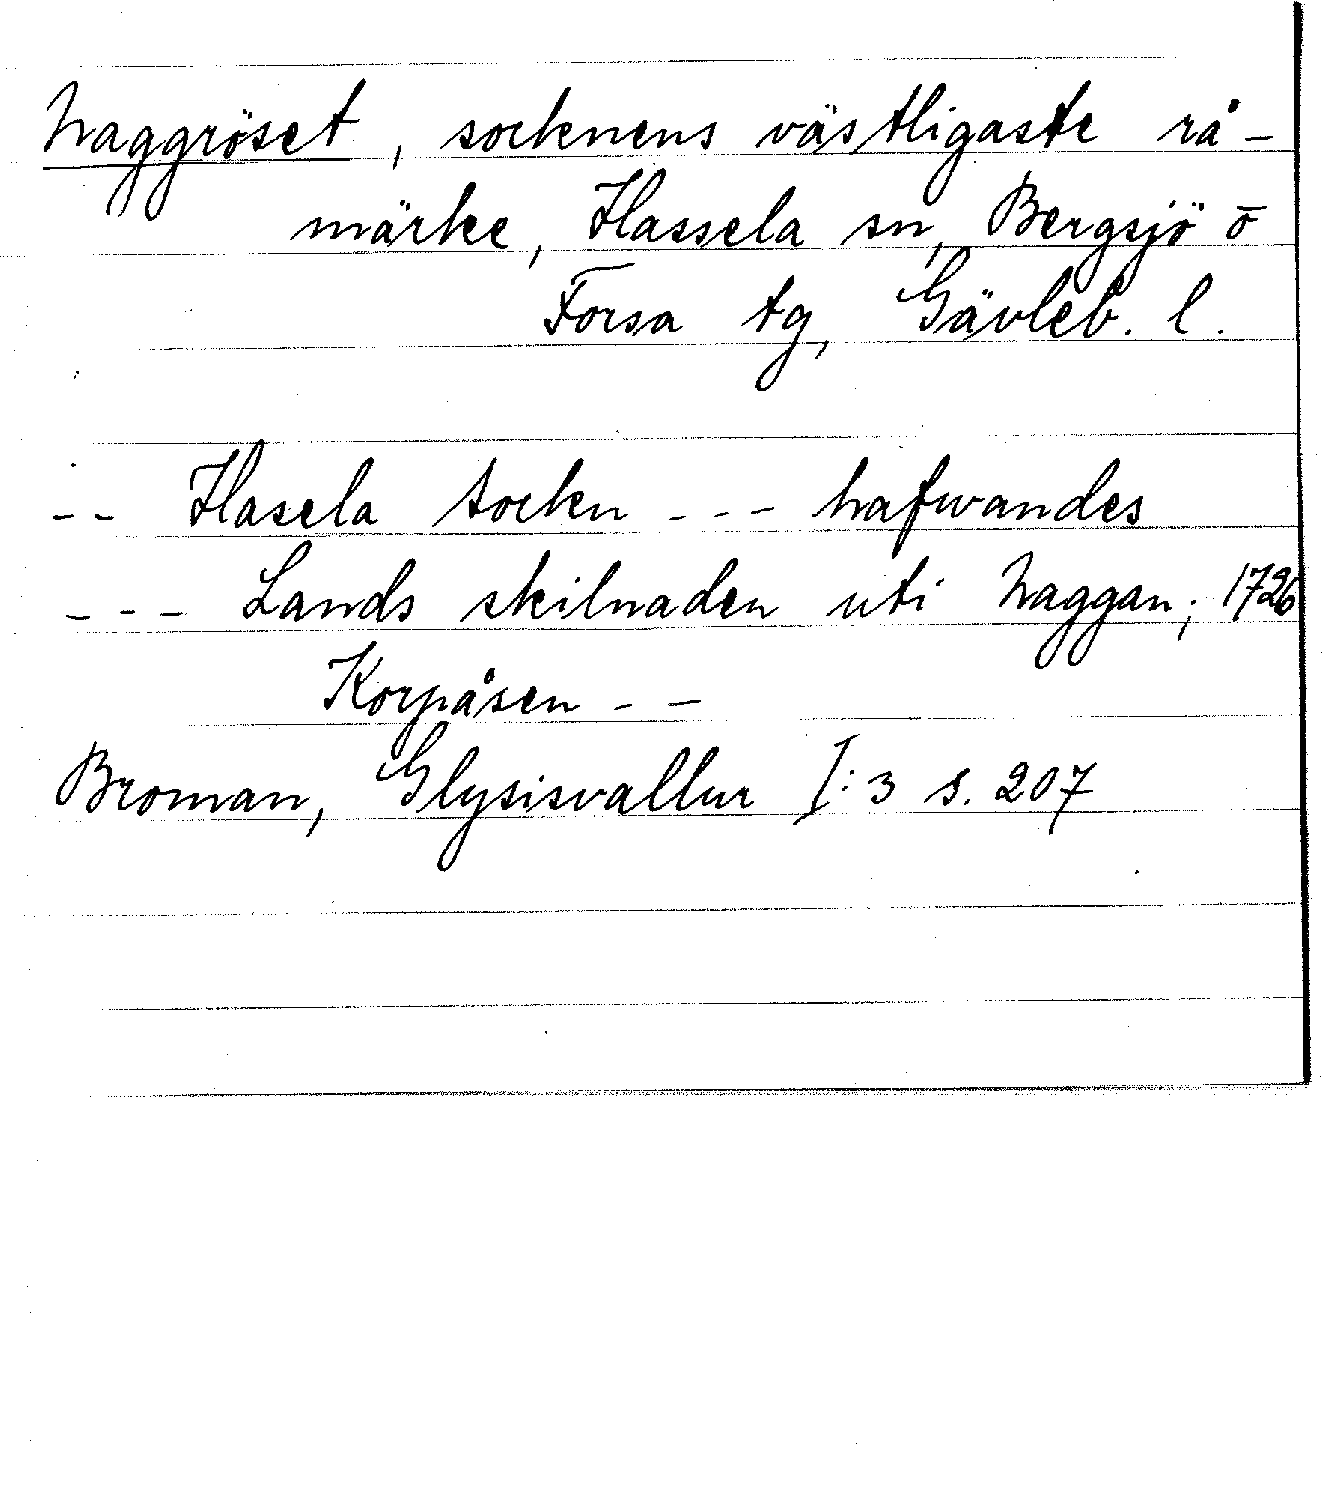 Naggröset, socknens västligaste rå-
märke, Hassela sn, Bergsjö o
Forsa tg, Gävleb. l.
-- Hasela Sockn --- hafwandes
--- Lands skilnaden uti Naggan; 1726
Korpåsen --
Broman, Glysisvallur I:3 s. 207